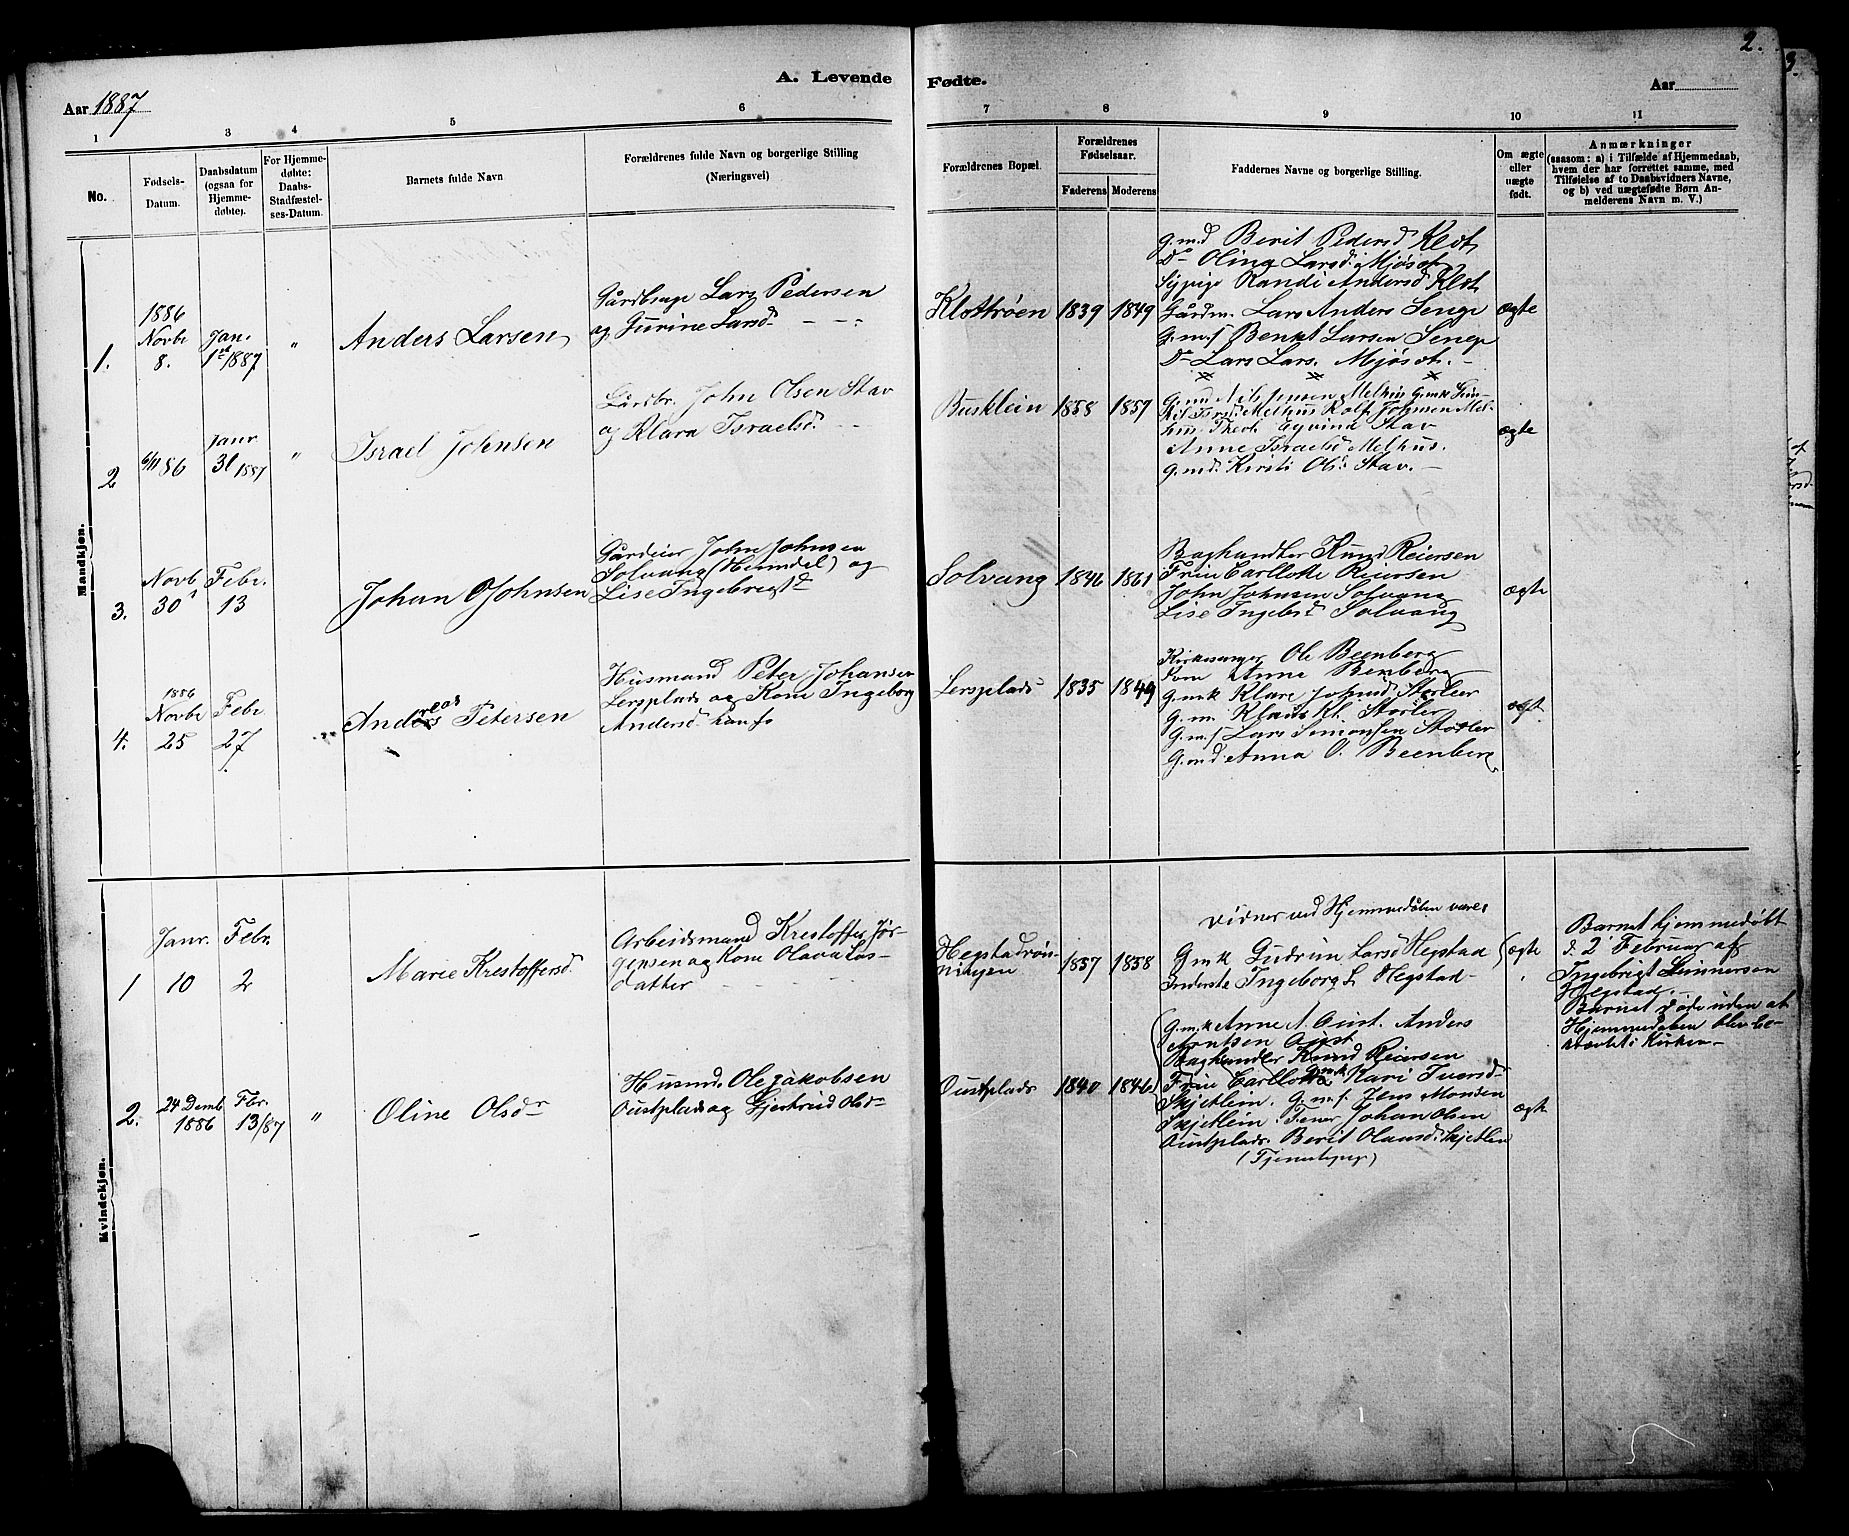 2.
3.
A. Levende Fødte.
Aar 1887
Aar
1 3 4 5 6 7 8 9 10 11
No.
Fødsels-Datum.
Daabsdatum (ogsaa for Hjemmedøbte).
For Hjemmedøbte: Daabs-Stadfæstelses-Datum.
Barnets fulde Navn
Forældrenes fulde Navn og borgerlige Stilling
(Næringsvei)
Forældrenes Bopæl.
Forældrenes Fødselsaar.
Faderens Moderens
Faddernes Navne og borgerlige Stilling.
Om ægte eller uægte født.
Anmærkninger
(saasom: a) i Tilfælde af Hjemmedaab,
hvem der har forrettet samme, med
Tilføielse af to Daabsvidners Navne,
og b) ved uægtefødte Børn An-
melderens Navn m. V.)
Mandkjøn.
1.
1886
Novbr
8.
Jan.
1st 1887
"
Anders Larsen
Gårdbrug Lars Pedersen
og Gurine Larsd
Klottrøen
1839
1849
G.m.d Berit Pedersd Klot
Do Olina Larsd. Mjøsot
Sypige Randi Andersd Klot
Gårdm. Lars Anders Senge
G.m.s Benkt Larsen
Do Lars Lars. Mjøsot.
ægte
2
6/11 86
Janr
30 1887
"
Israel Johnsen
Gårdbr. John Olsen Stav
og Klara Israelsd.
Busklein
1858
1857
Melhus
Melhus Rolf Johnsen Mel-
hus Eyvind Stav
Anne Israelsd Melhus.
G.md. Kirsti Ols. Stav.
ægte
3.
Novb
30
Febr.
13
Johan O Johnsen
Gårdeier John Johnsen
Solvang (Heimdal) og
Lise Ingebrigtd
Solvang
1846
1861
Baghandler Knud Reiersen
Frue Carllotte Reiersen
John Johnsen Solvang
Lise Ingebd Solvang
ægte
4.
1886
Novbr
25
Febr
27
Andreas Petersen
Husmand Peter Johansen
Lersplads og Kone Ingeborg
Andersd
Lersplads
1835
1849
Kirkesanger Ole Beenberg
Kone Anne Benberg
G.m.k Klare Johnsd Størler
G.m. Klaus Kl. Størler
G.m.s Lars Simonsen Størler
G.m.d Anna O. Beenberg
ægt.
Kvindekjøn.
1
Janr.
10
Febr.
2
Marie Krestoffersd
Arbeidsmand Krestoffer Jør-
gensen og Kone Olava Las-
datter
Hegstadrøn-
ningen
1857
1858
Vidner ved Hjemmedåben vare:
G.m.k Gudrun Larsd Hegstad
Inderste Ingeborg L Hegstad
ægte
Barnet hjemmedøbt
d. 2 Februar af
Ingebrigt Gunnersen
Hegstad.
Barnet døde uden at
Hjemmedåben blev be-
kræftet i Kirken
2.
24 Decmb
1886
Fbr.
13/87
"
Oline Olsdr
Husmd. Ole Jakobsen
Oustplads og Gjertrud Olsdr
Oustplads
1840
1846
G.m.k Anne A Oust. Anders
Arntsen Oust
Baghandler Knud Reiersen
Frue Carllotte G.m.k Kari Iversd
Skjetlein. G.m.s. Jens Monsen
Skjetlein. Johan Olsen
Oustplads. Berit Olausd. Skjetlein
(Tjenestepige)
ægte